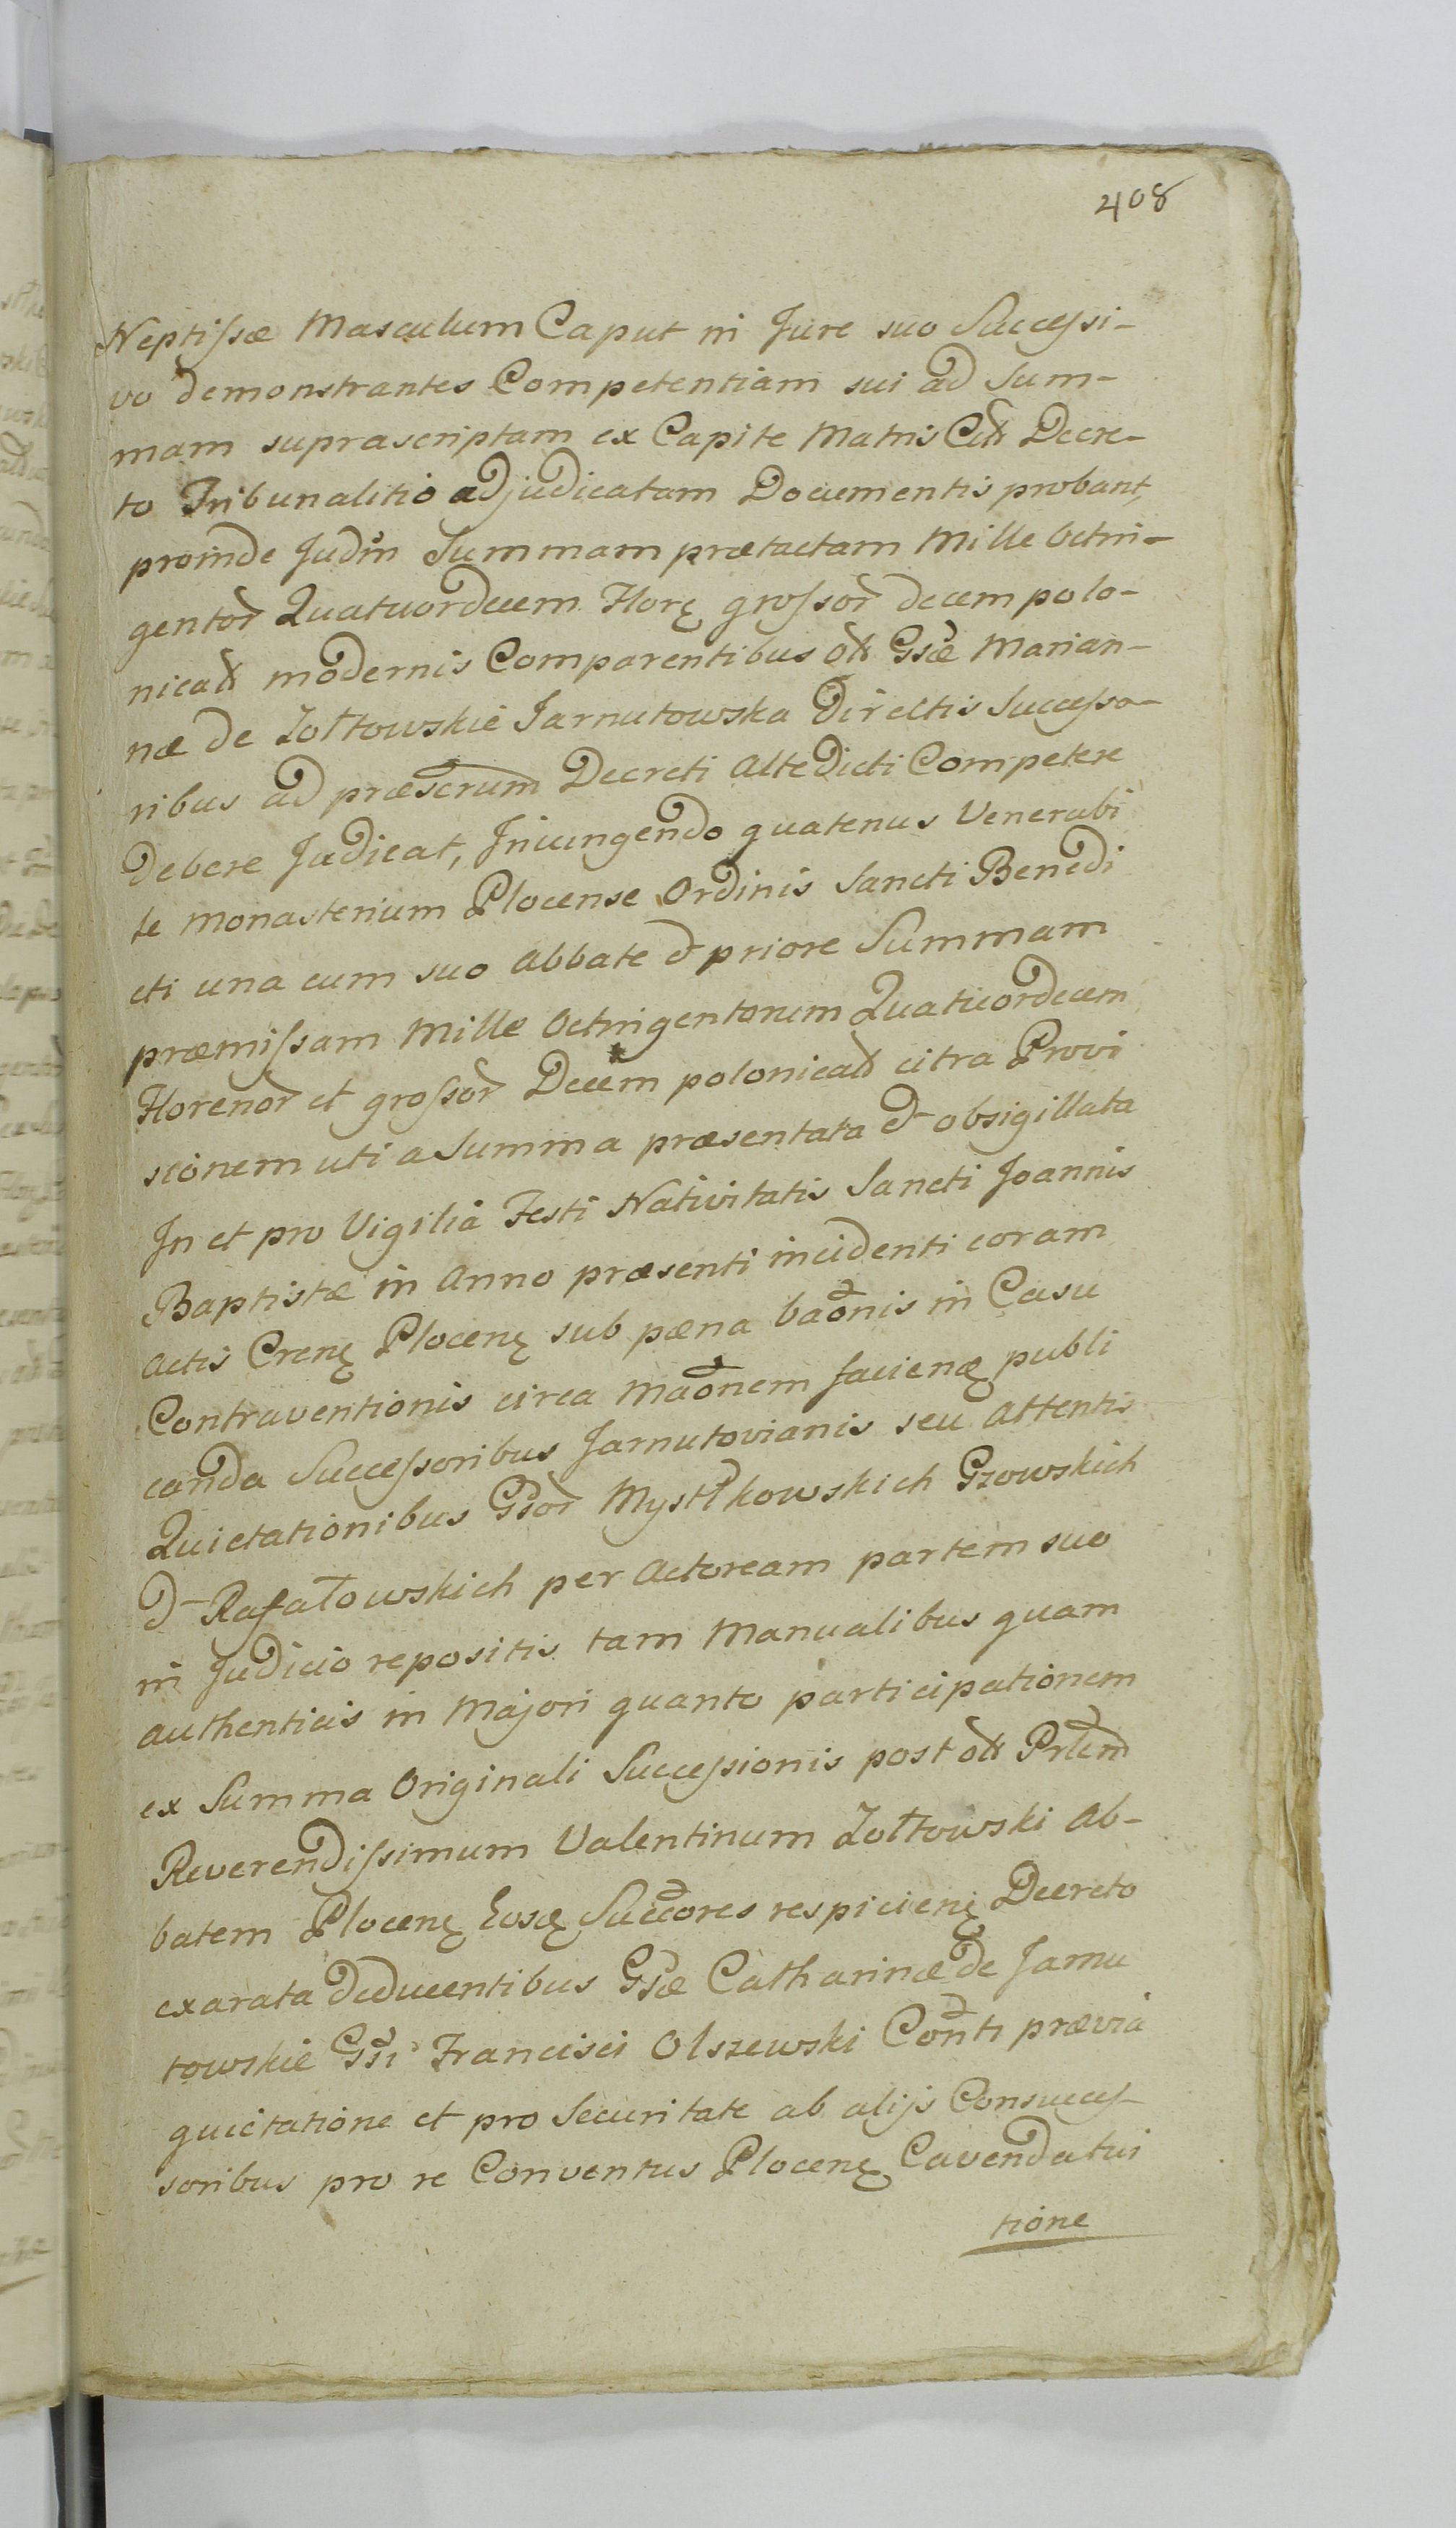 408
Neptissæ Masculum Caput in Jure suo Successi-
vo demonstrantes Competentiam sui ad Sum-
mam suprascriptam ex Capite Matris Decre-
to Tribunalitio adjudicatam Documentis probant,
proinde Judm̃ Summam prætactam Mille Octin-
gentor̃ Quatuordecem Florę grossor̃ decem polo-
nical̃ modernis Comparentibus ol̃ Gsæ Marian-
næ de Zołtowskie Jarnutowska Directis Successo-
ribus ad præscrum Decreti Altedicti Competere
Debere Judicat, Iniungendo quatenus Venerabi
le Monasterium Plocense Ordinis Sancti Benedi
cti una cum suo Abbate & priore Summam
præmissam Mille Octingentorum Quatuordecem
Florenor̃ et grossor̃ Decem polonical̃ citra Provi
sionem uti a Summa præsentata & obsigillata
In et pro Vigilia Festi Nativitatis Sancti Joannis
Baptistæ in Anno præsenti incidenti coram
Actis Crenę Plocenę sub pæna baõnis in Casu
Contraventionis circa Maõnem facienę publi
canda Successoribus Jarnutovianis seu Attentis
Quietationibus Gsor̃ Mystkowskich Gzowskich
& Rafałowskich per Actoream partem suo
in Judicio repositis tam Manualibus quam
authenticis in Majori quanto participationem
ex Summa Originali Successionis post ol̃ Prlem̃
Reverendissimum Valentinum Zołtowski Ab-
batem Plocenę Eosę Succõres respicienę Decreto
exarata deducentibus Gsæ Catharinæ de Jarnu
towskie Gsi Francisci Olszewski Conti prævia
quietatione et pro Securitate ab alijs Consucces-
soribus pro re Conventus Plocenę Cavendatui
tione